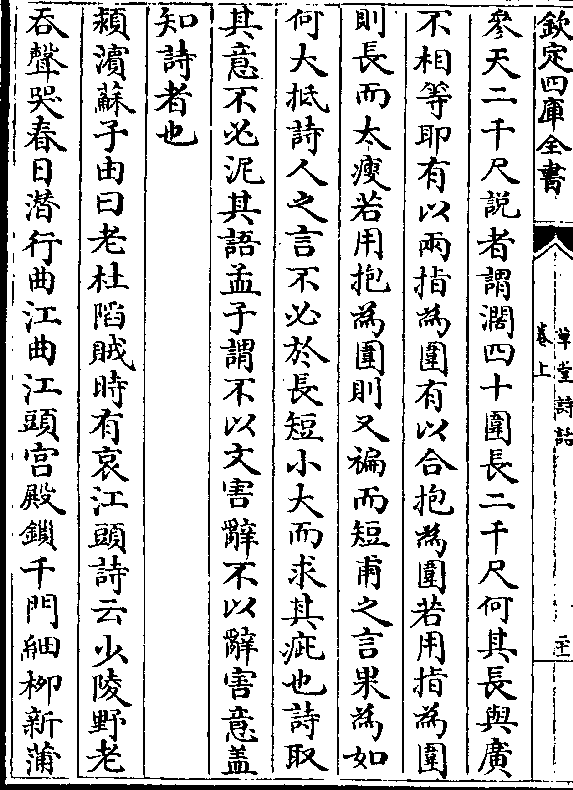 欽定四庫全書
草堂詩話
卷上
二十一
參天二千尺説者謂濶四十圍長二千尺何其長與廣
不相等耶有以兩指為圍有以合抱為圍若用指為圍
則長而太瘦若用抱為圍則又褊而短甫之言果為如
何大抵詩人之言不必於長短小大而求其疵也詩取
其意不必泥其語孟子謂不以文害辭不以辭害意盖
知詩者也
潁濱蘇子由曰老杜䧟賊時有哀江頭詩云少陵野老
吞聲哭春日潛行曲江曲江頭宫殿鎖千門細栁新蒲